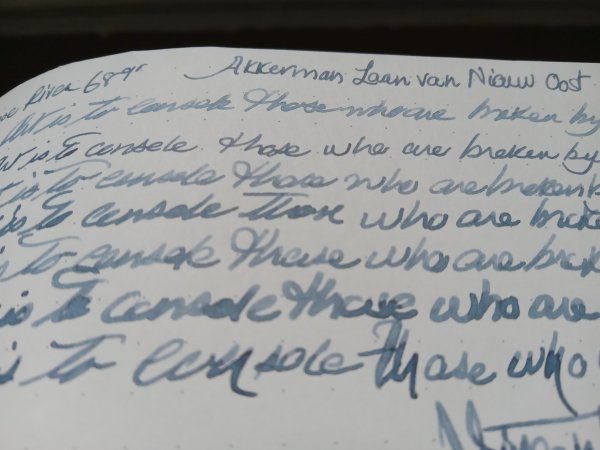 River 68gr Akkerman Laan van Nieuw Oost
Art is to console those who are broken by
is to console those who are broken by
is to console those who are broken b
is to console those who are broke
to console those who are brok
is to console those who are
to console those who